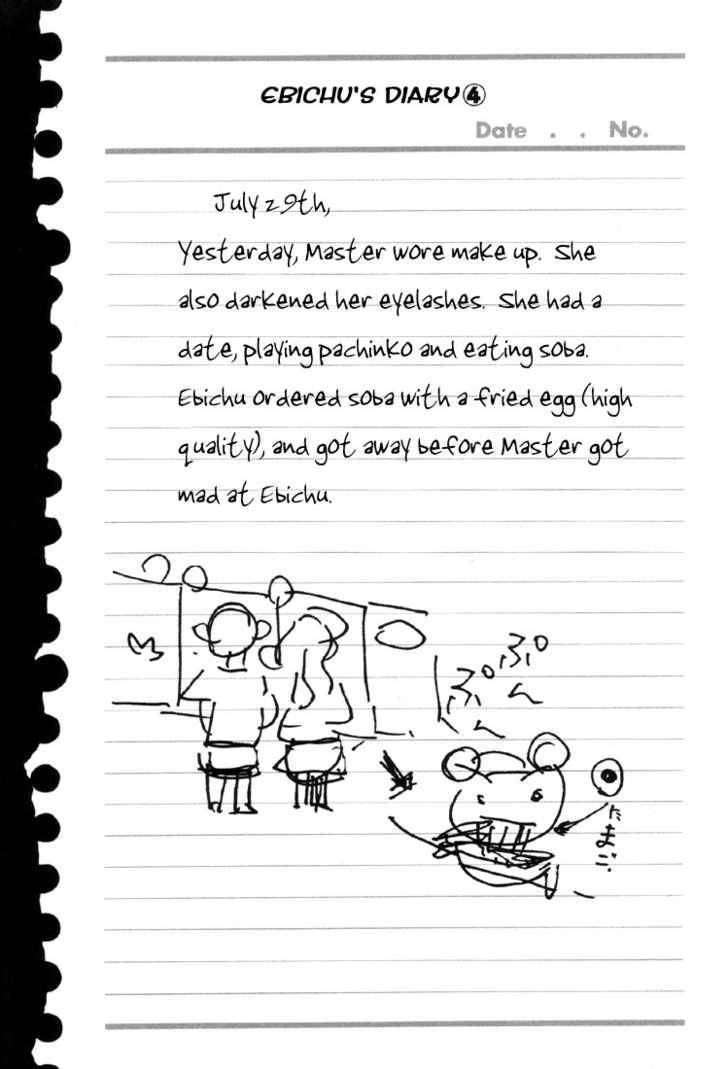 EBICHU'S DIARY④
Date . . No.
July 29th,
Yesterday, Master wore make up. She
also darkened her eyelashes. She had a
date, playing pachinko and eating soba.
Ebichu ordered soba with a fried egg (high
quality), and got away before Master got
mad at Ebichu.